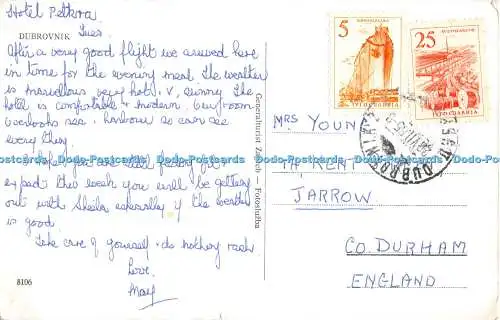 Hotel Petkra
Tues.
DUBROVNIK
After a very good flight we arrived here
in time for the evening meal. The weather
is marvellous very hot, v. sunny. The
hotel is comfortable + modern. Our room
overlooks sea + harbour so can see
every thing.
Hope you are still feeling fit
expect this week you will be getting
out with Sheila especially if the weather
is good.
Take care of yourself + do nothing rash.
Love
May
8106
Generalturist Zagreb — Fotoslužba
5
JUGOSLAVIJA
25
JUGOSLAVIJA
DUBROVNIK
MRS YOUN
KENT
JARROW
CO. DURHAM
ENGLAND
Postcards Dodo Postcards Dodo Postcards Dodo Postcards